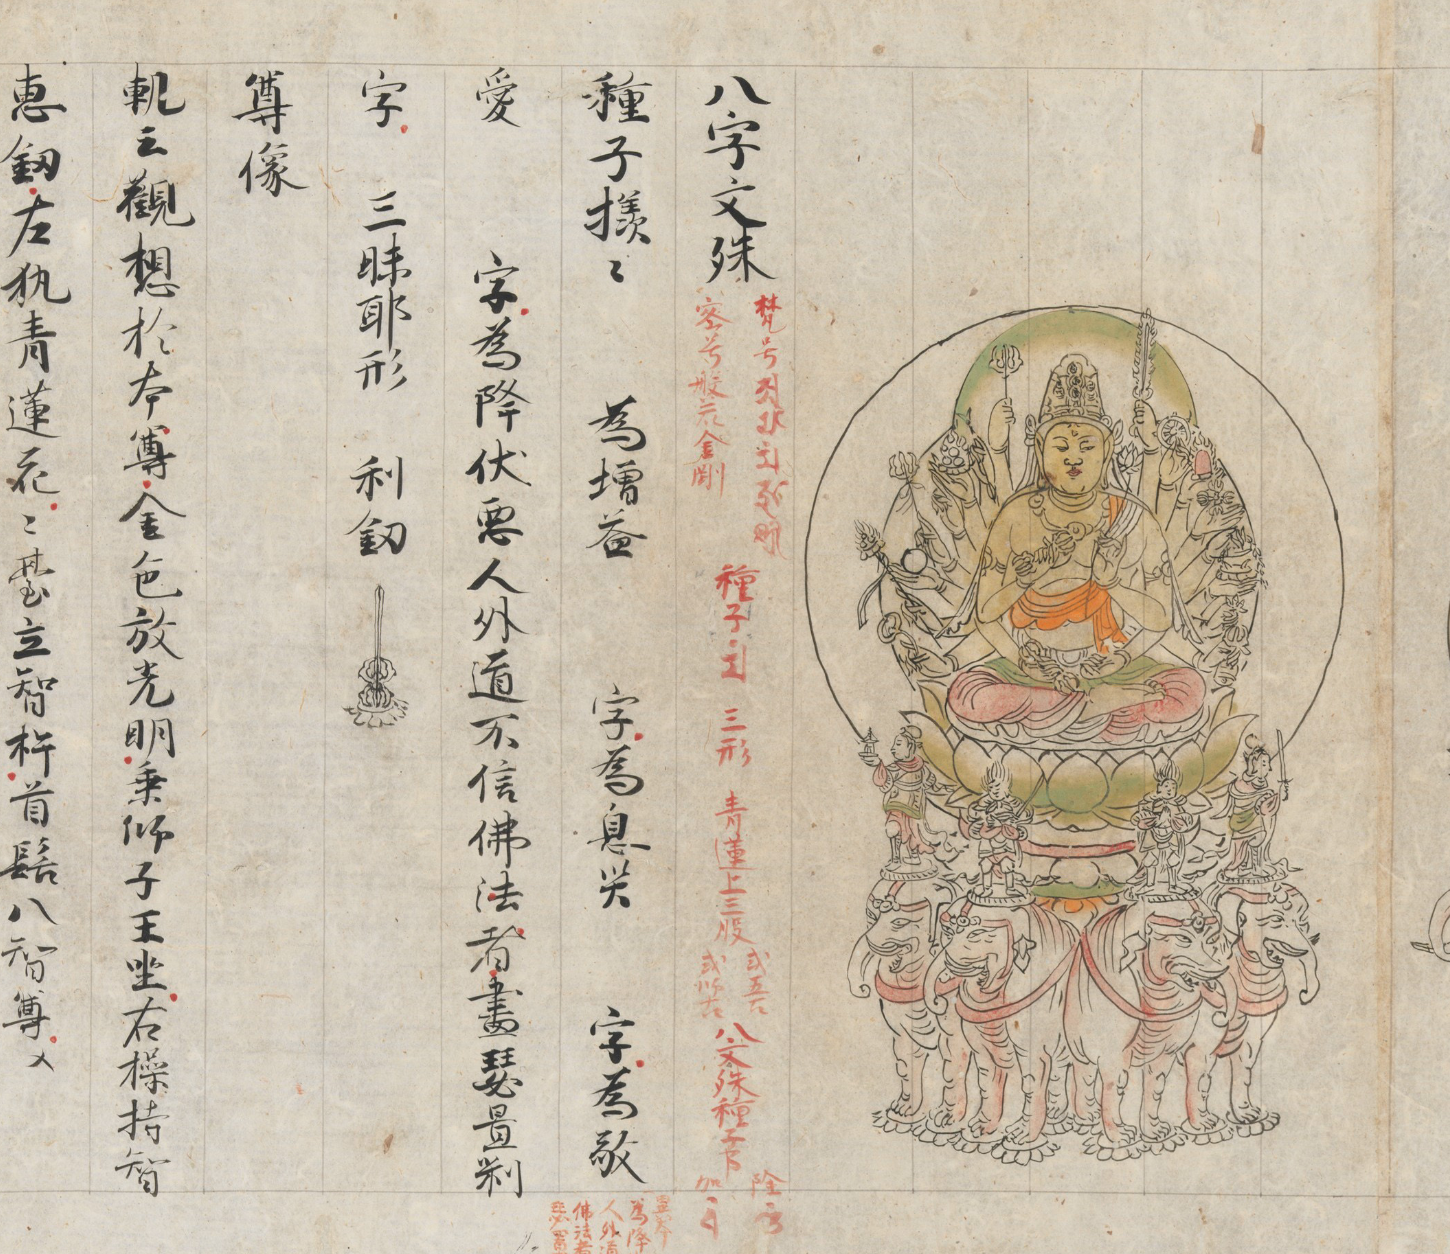 八字文殊
梵号
密号般若金剛
種子
三形
青蓮上三股
或五古
八文殊種子
種子㨾〻 為増益 字為息災 字為敬
愛 字為降伏悪人外道不信佛法者畫瑟置剎
為降
人外道
佛法者
字 三昧耶形 利釼
尊像
軌云觀想於本尊金色放光明乗師子王坐右操持智
恵釼左執青蓮花〻臺立智杵首髻八智尊